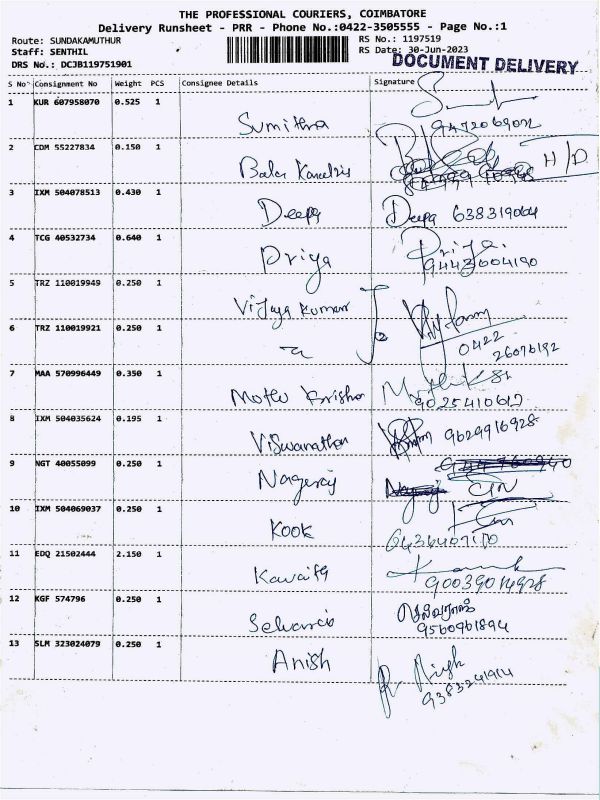 THE PROFESSIONAL COURIERS, COIMBATORE
Delivery Runsheet - PRR - Phone No.:0422-3505555 - Page No.:1
Route: SUNDAKAMUTHUR RS No.: 1197519
Staff: SENTHIL RS Date: 30-Jun-2023
DRS No.: DCJB119751901 DOCUMENT DELIVERY
S No Consignment No Weight PCS Consignee Details Signature
1 KUR 607958070 0.525 1 Sumithra
2 CDM 55227834 0.150 1 Bala H/D
3 IXM 504078513 0.430 1 Deepa Deepa 638319064
4 TCG 40532734 0.640 1 Priya Priya.
9443604190
5 TRZ 110019949 0.250 1 Vijaya Kumar
6 TRZ 110019921 0.250 1 0422
26076192
7 MAA 570996449 0.350 1
9025410617
8 IXM 504035624 0.195 1 Viswanathan 9629916928
9 NGT 40055099 0.250 1 Nagaraj
10 IXM 504069037 0.250 1 Kook
11 EDQ 21502444 2.150 1
12 KGF 574796 0.250 1 செல்வராஜ்
9560961894
13 SLM 323024079 0.250 1 Anish
9383241914